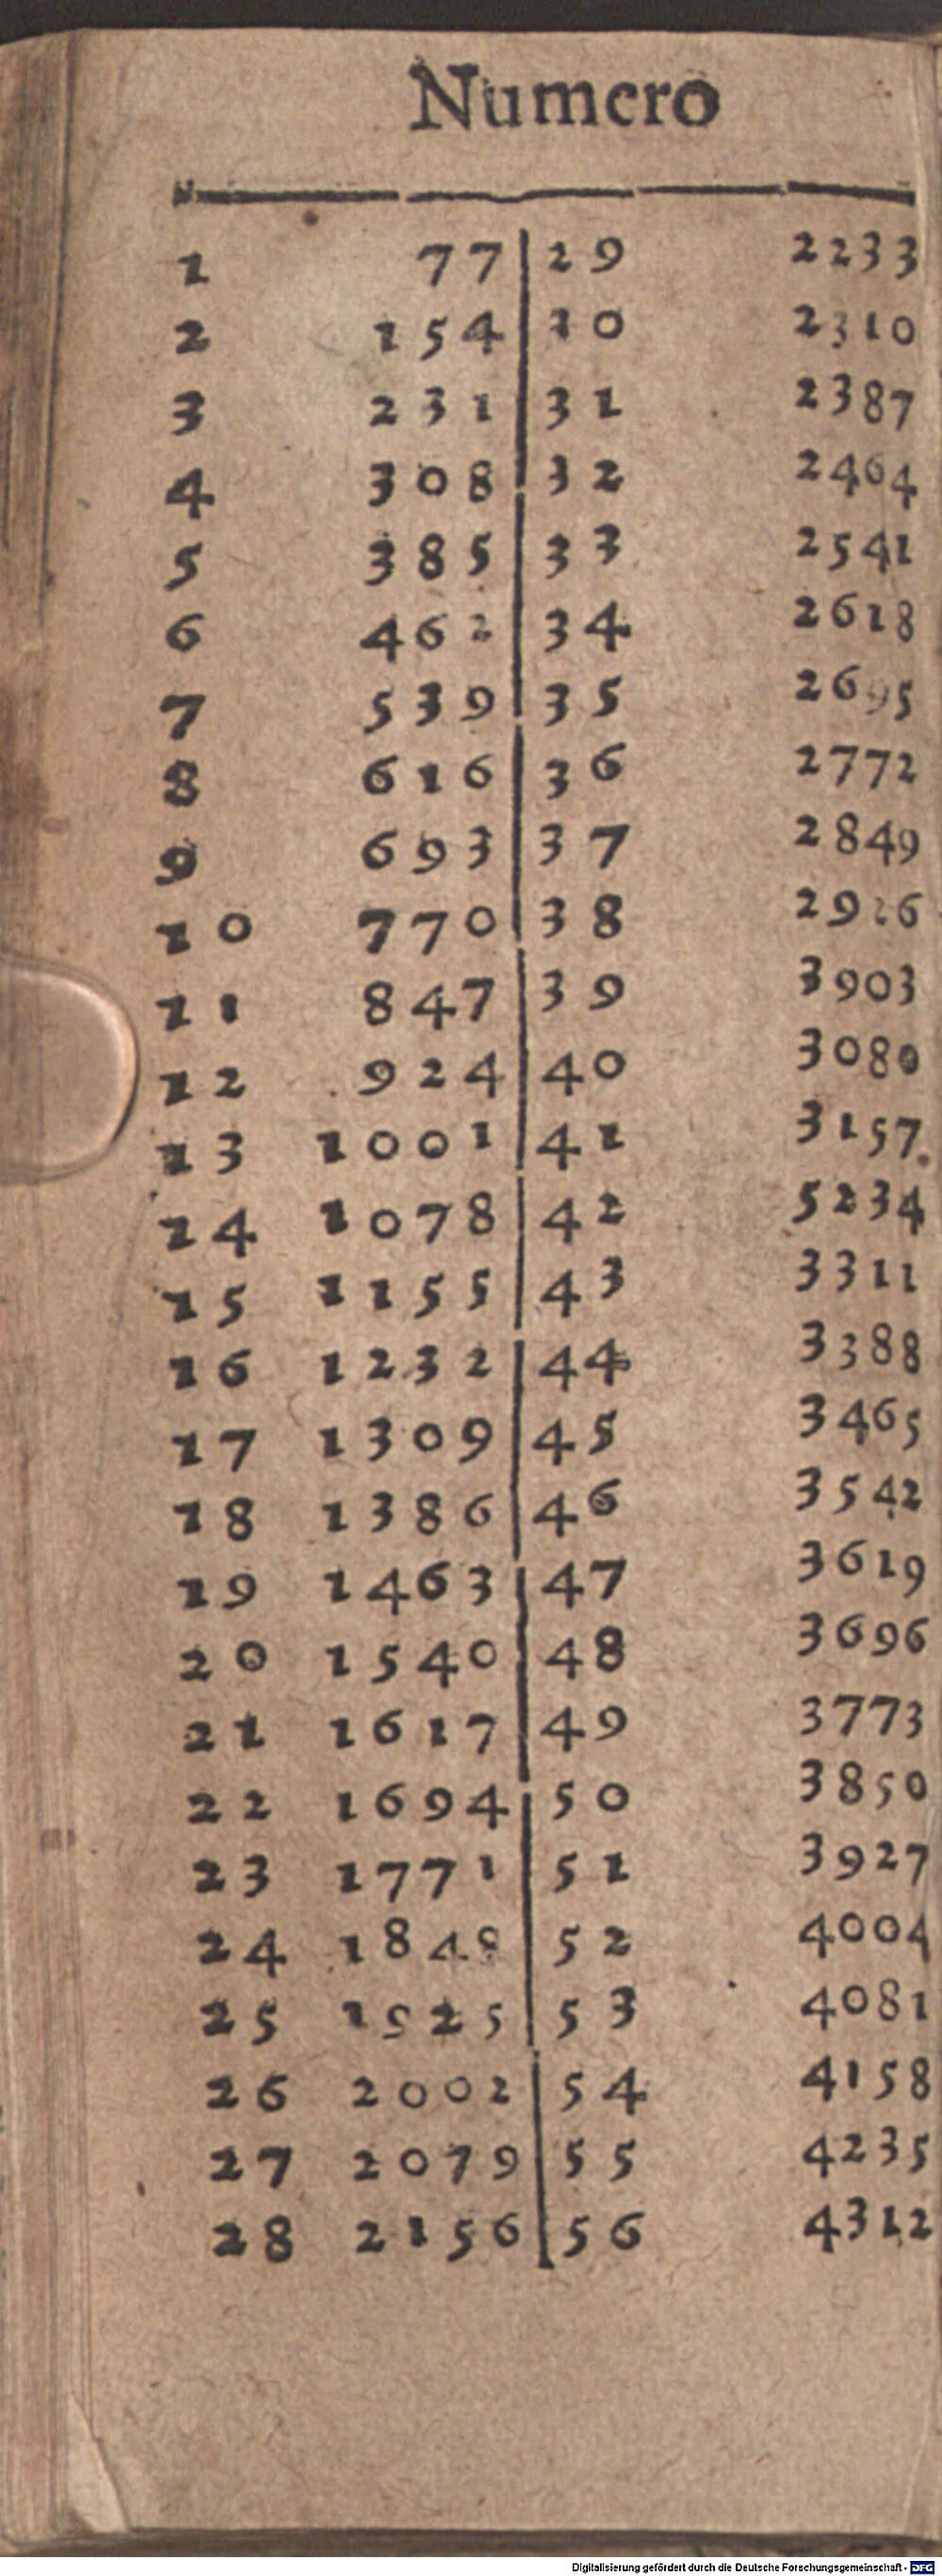 Numero
1 77 | 29 2233
2 154 | 30 2310
3 231 | 31 2387
4 308 | 32 2464
5 385 | 33 2541
6 462 | 34 2618
7 539 | 35 2695
8 616 | 36 2772
9 693 | 37 2849
10 770 | 38 2926
11 847 | 39 3903
12 924 | 40 3080
13 1001 | 41 3157
14 1078 | 42 5234
15 1155 | 43 3311
16 1232 | 44 3388
17 1309 | 45 3465
18 1386 | 46 3542
19 1463 | 47 3619
20 1540 | 48 3696
21 1617 | 49 3773
22 1694 | 50 3850
23 1771 | 51 3927
24 1848 | 52 4004
25 1925 | 53 4081
26 2002 | 54 4158
27 2079 | 55 4235
28 2156 | 56 4312
Digitalisierung gefördert durch die Deutsche Forschungsgemeinschaft - DFG